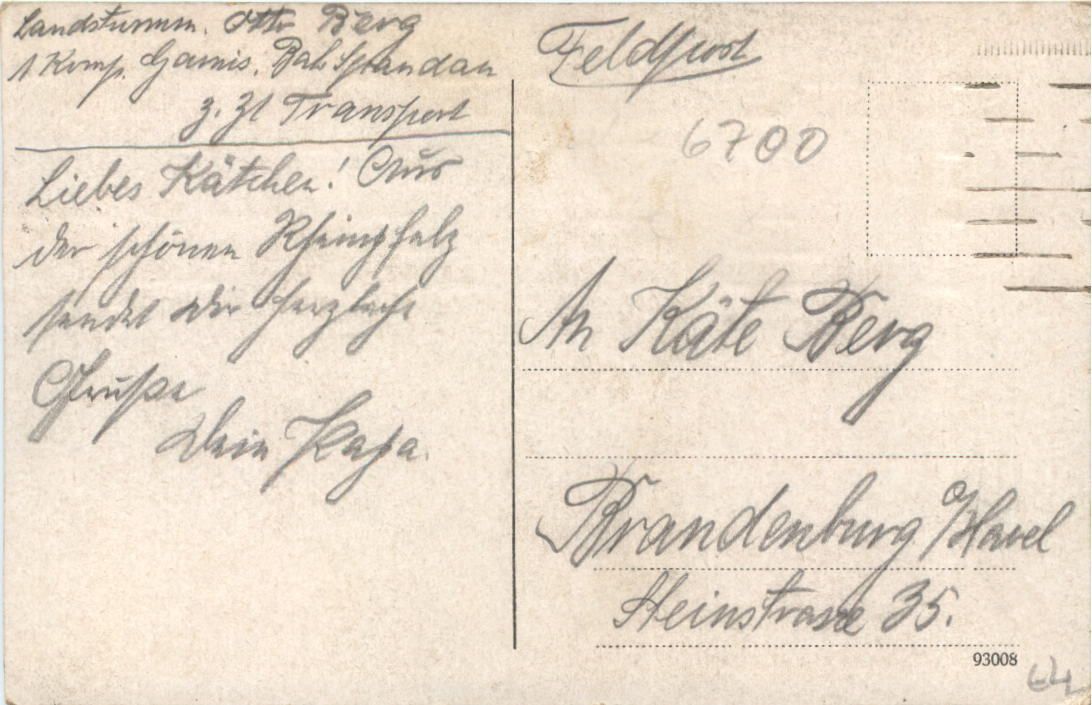 Landsturmm. Otto Berg
1 Komp. Garnis. Bat. Spandau
z. Zt Transport
Liebes Kätchen! Aus
der schönen Rheinpfalz
sendet Dir herzliche
Grüße
Dein Papa.
Feldpost
6700
An Käte Berg
Brandenburg/Havel
Steinstrasse 35.
93008
64